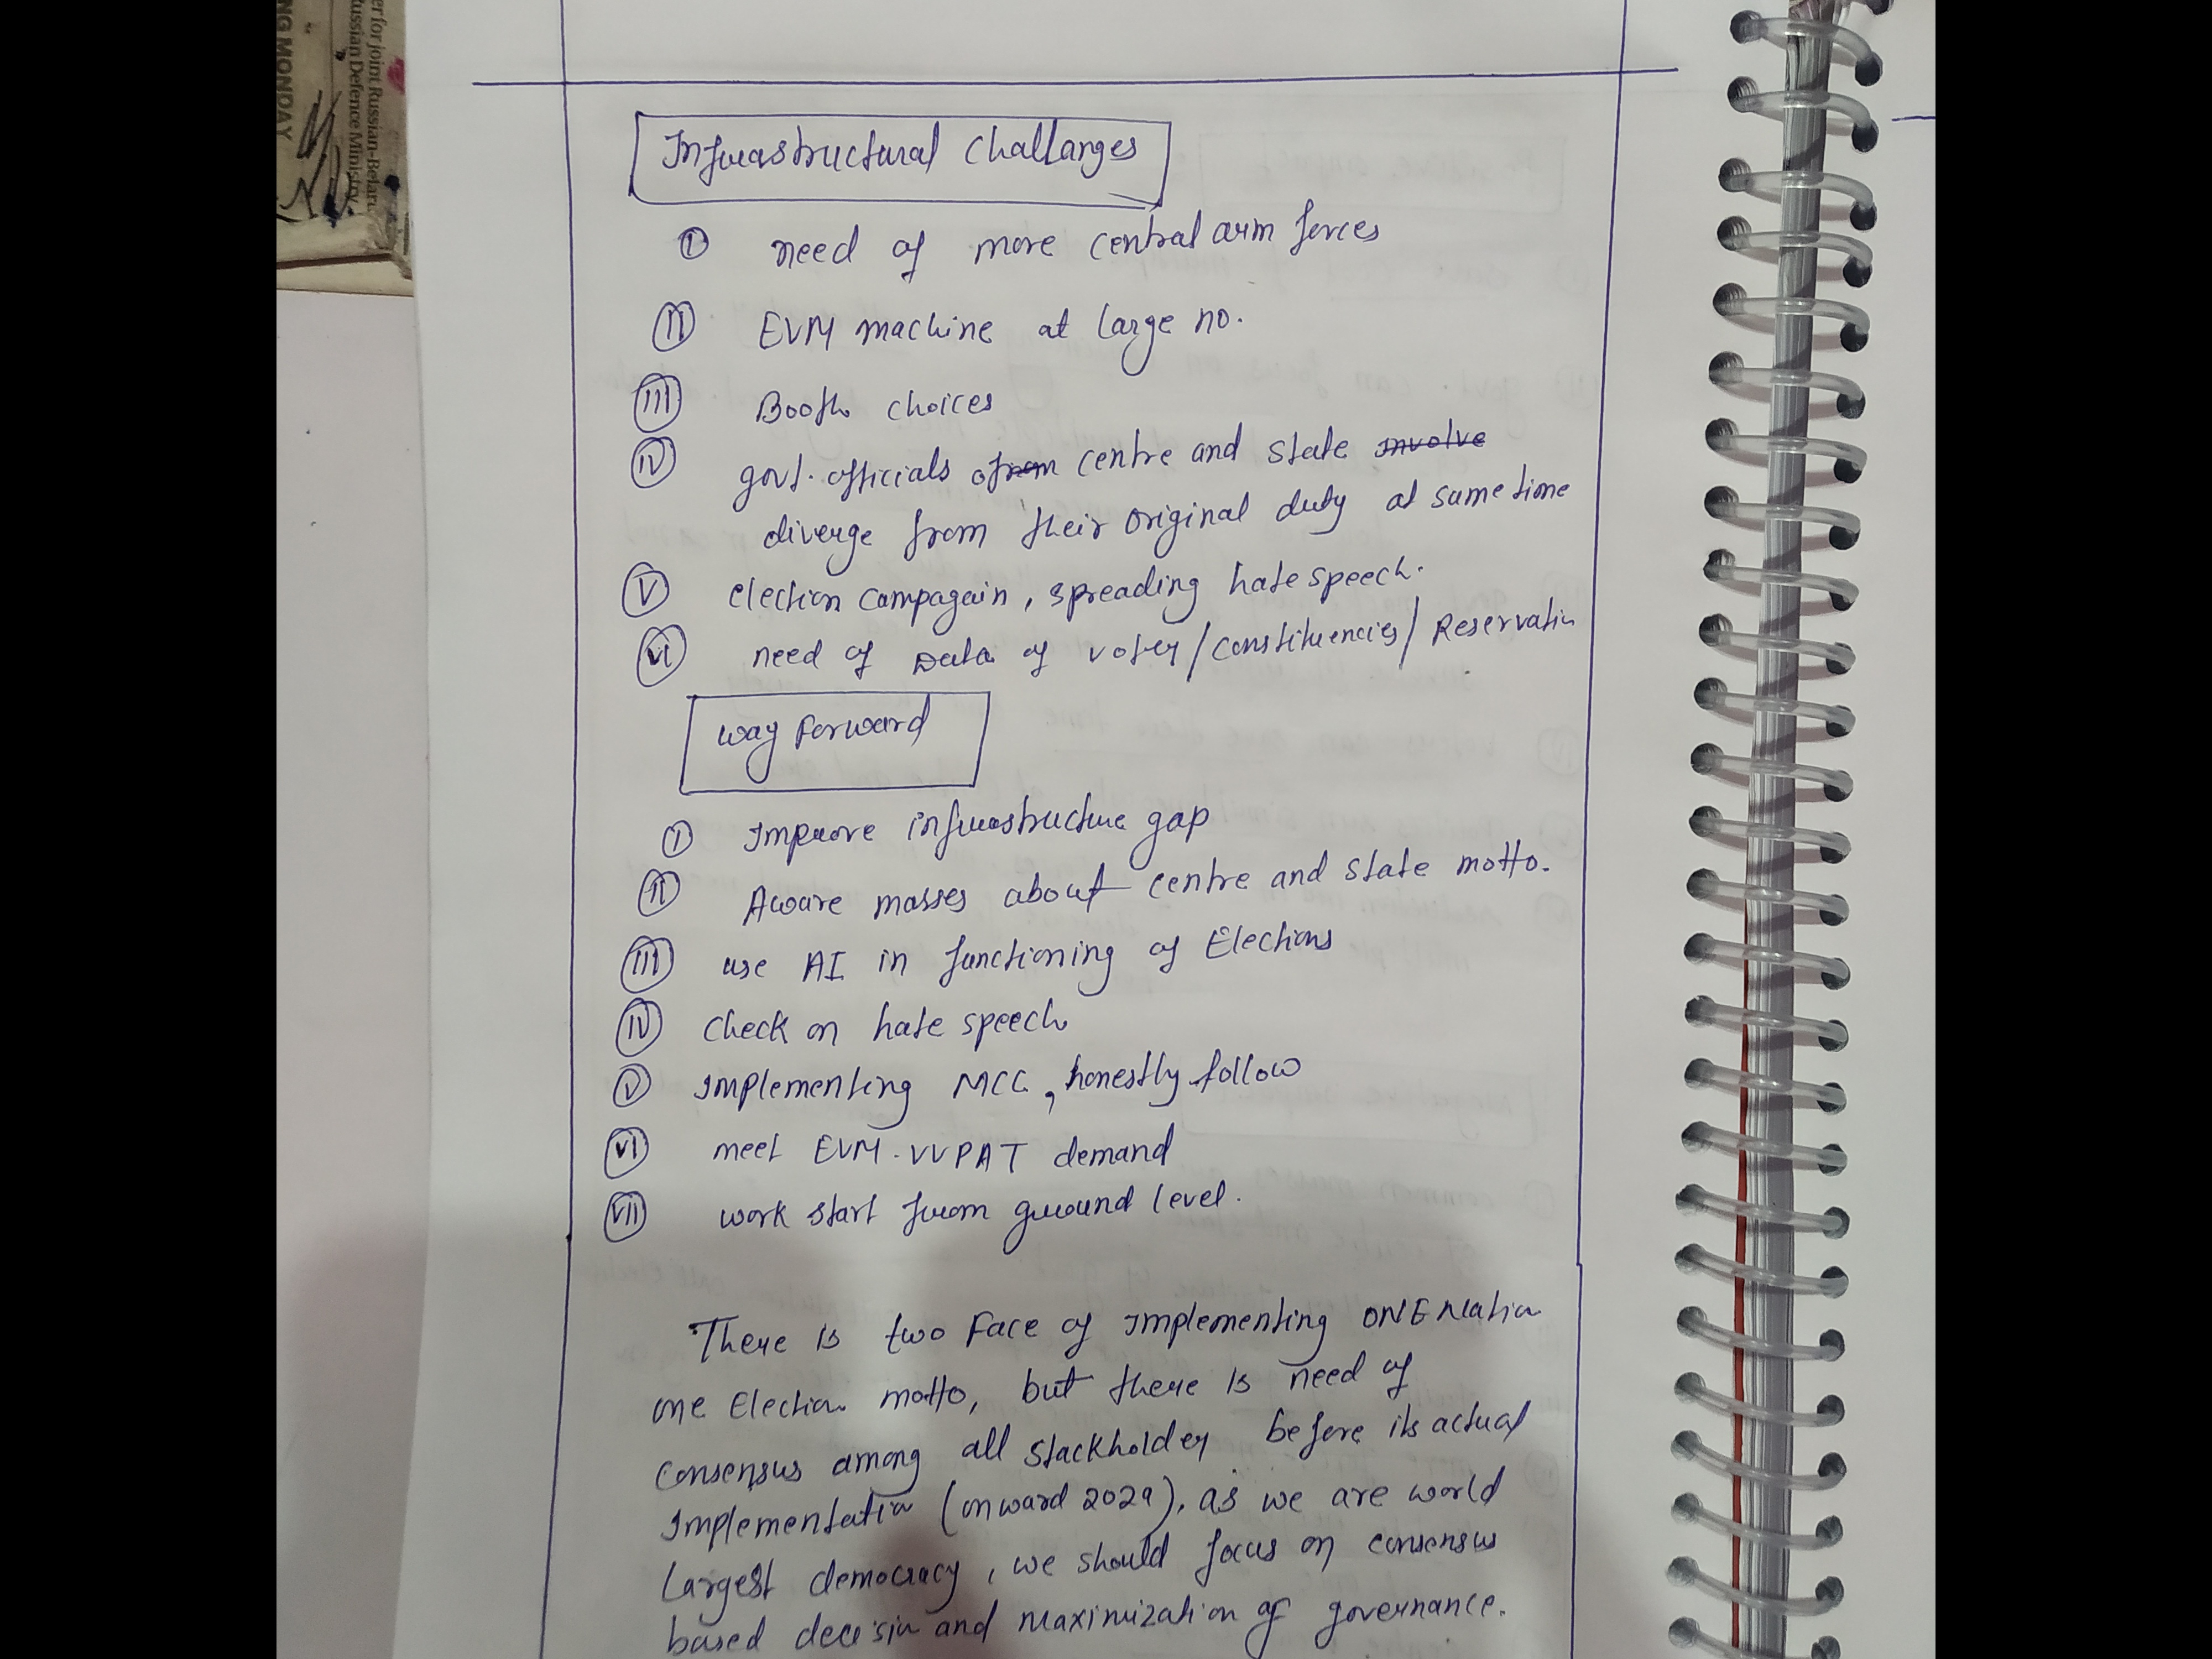 er for joint Russian-Belaru
ussian Defence Ministry
NG MONDAY
Infrastructural Challanges
I need of more central arm forces
II EVM machine at large no.
III Booth choices
IV govt. officials of centre and state involve
diverge from their original duty at same time
V election campagain, spreading hate speech.
VI need of Data of voter/constituencies/Reservation
way forward
I Improve infrastructure gap
II Aware masses about centre and state motto.
III use AI in functioning of Elections
IV check on hate speech
V Implementing MCC, honestly follow
VI meet EVM-VVPAT demand
VII work start from ground level.
There is two face of Implementing ONE Nation
one Election motto, but there is need of
consensus among all stackholder before its actual
Implementation (onward 2029), as we are world
largest democracy, we should focus on consensus
based decision and maximization of governance.